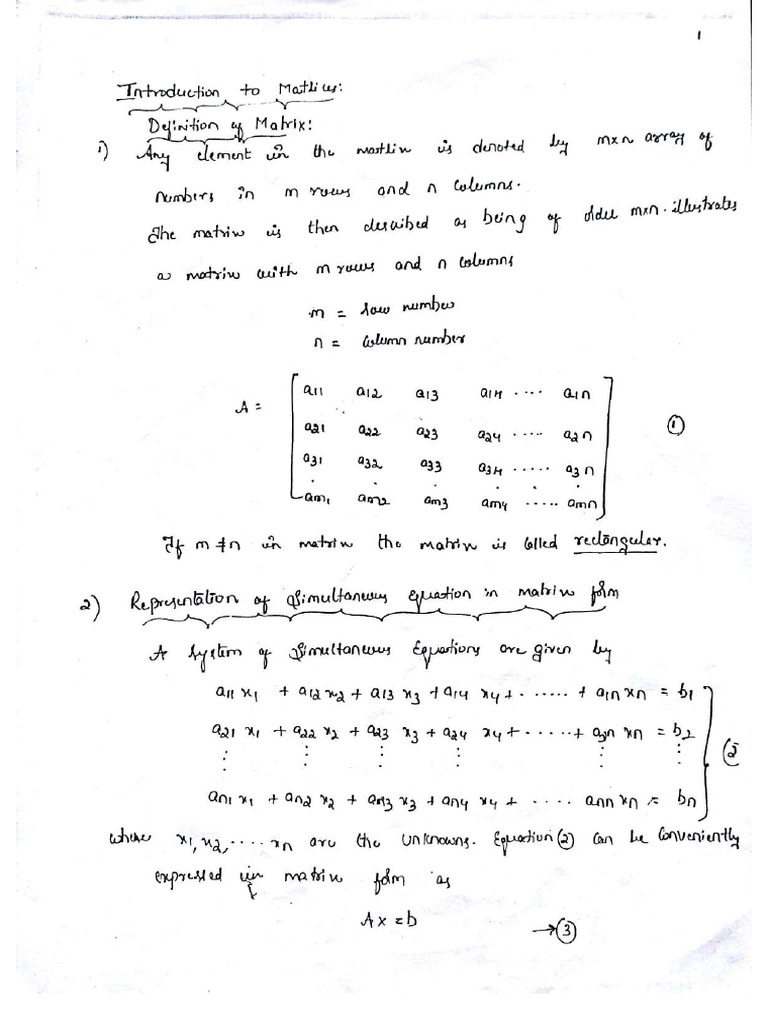 1
Introduction to Matrices:
Definition of Matrix:
1) Any element in the matrix is denoted by m×n array of
numbers in m rows and n columns.
The matrix is then described as being of order m×n. illustrates
a matrix with m rows and n columns
m = row number
n = column number
A = [ a11 a12 a13 a14 .... a1n
a21 a22 a23 a24 ..... a2n ①
a31 a32 a33 a34 ..... a3n
. . . . . .
am1 am2 am3 am4 ..... amn ]
If m ≠ n in matrix the matrix is called rectangular.
2) Representation of Simultaneous Equation in matrix form
A System of Simultaneous Equations are given by
a11 x1 + a12 x2 + a13 x3 + a14 x4 + ...... + a1n xn = b1
a21 x1 + a22 x2 + a23 x3 + a24 x4 + ...... + a2n xn = b2
⋮ ⋮ ⋮ ⋮ ⋮ ⋮ ②
an1 x1 + an2 x2 + an3 x3 + an4 x4 + .... ann xn = bn
where x1, x2, .... xn are the unknowns. Equation ② can be conveniently
expressed in matrix form as
Ax = b → ③